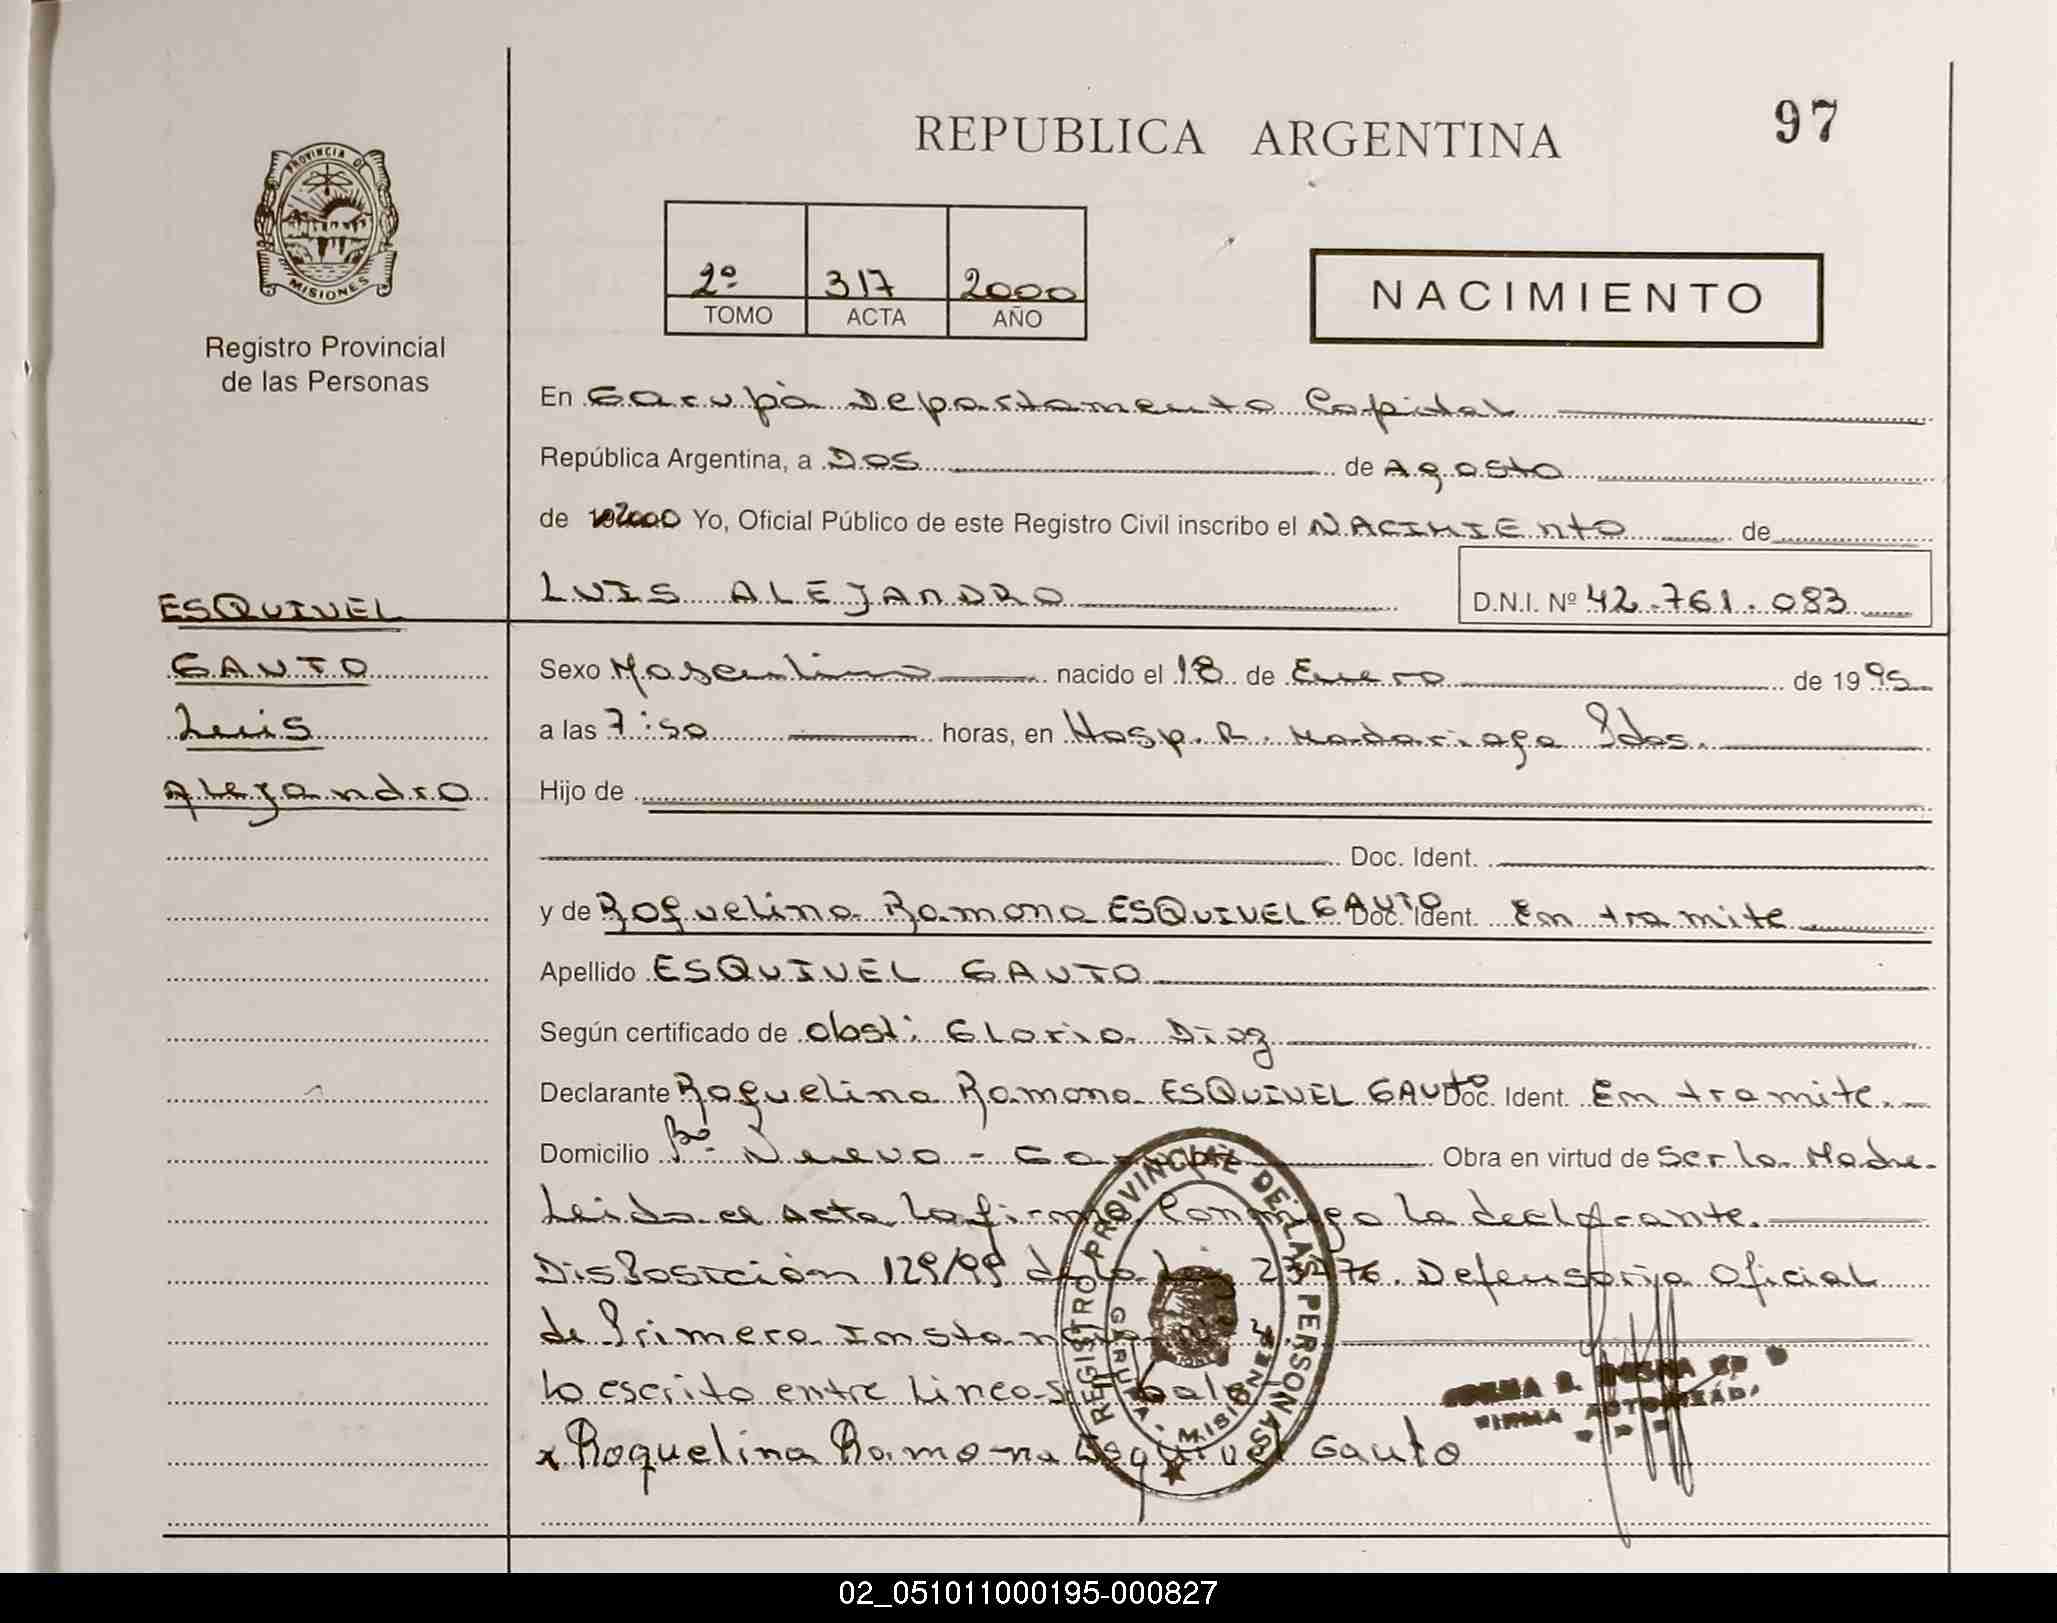 97
REPUBLICA ARGENTINA
PROVINCIA DE
MISIONES
Registro Provincial
de las Personas
2º 317 2000
TOMO ACTA AÑO
NACIMIENTO
En Garupá Departamento Capital
República Argentina, a Dos de Agosto
de 2000 Yo, Oficial Público de este Registro Civil inscribo el NACIMIEnto de
LUIS ALEJANDRO D.N.I. Nº 42.761.083
ESQUIVEL
GAUTO
Luis
Alejandro
Sexo Masculino nacido el 18 de Enero de 1995
a las 7:50 horas, en Hosp. R. Madariaga Pdas.
Hijo de
Doc. Ident.
y de Roquelina Ramona ESQUIVEL GAUTO Doc. Ident. En tramite
Apellido ESQUIVEL GAUTO
Según certificado de obst: Gloria Diaz
Declarante Roquelina Ramona ESQUIVEL GAUto Doc. Ident. En tramite.
Domicilio Bº Nuevo - Garupá Obra en virtud de Ser la Madre.
Leida el Acta la firma Conmigo la declarante.
Disposición 129/99 de la Ley 25 Defensoria Oficial
de Primera Instancia
lo escrito entre lineas vale
x Roquelina Ramona Esquivel Gauto
REGISTRO PROVINCIAL DE LAS PERSONAS
GARUPA - MISIONES
FIRMA AUTORIZAD.
02_051011000195-000827